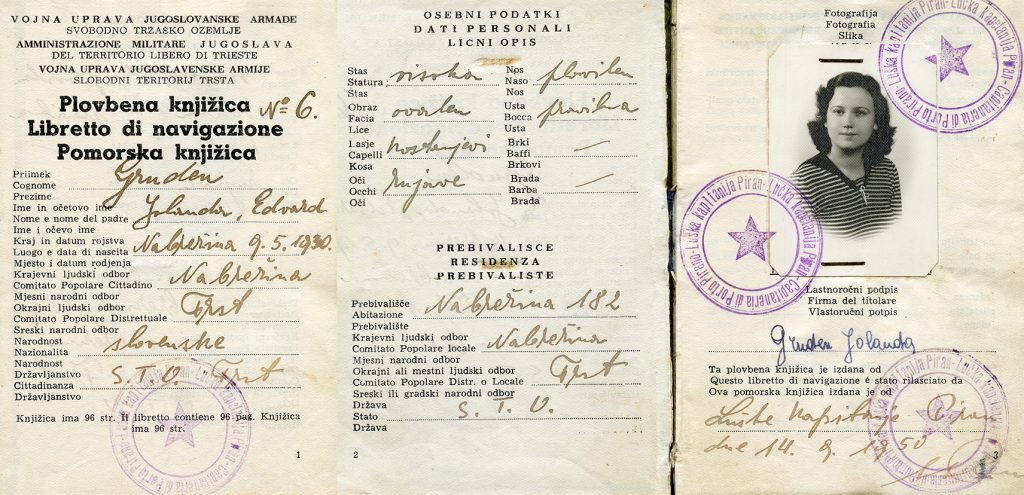 VOJNA UPRAVA JUGOSLOVANSKE ARMADE
SVOBODNO TRŽASKO OZEMLJE
AMMINISTRAZIONE MILITARE JUGOSLAVA
DEL TERRITORIO LIBERO DI TRIESTE
VOJNA UPRAVA JUGOSLAVENSKE ARMIJE
SLOBODNI TERITORIJ TRSTA
Plovbena knjižica № 6.
Libretto di navigazione
Pomorska knjižica
Priimek
Cognome Gruden
Prezime
Ime in očetovo ime
Nome e nome del padre Jolanda, Edvard
Ime i očevo ime
Kraj in datum rojstva
Luogo e data di nascita Nabrežina 9.5.1930.
Mjesto i datum rodjenja
Krajevni ljudski odbor
Comitato Popolare Cittadino Nabrežina
Mjesni narodni odbor
Okrajni ljudski odbor
Comitato Popolare Distrettuale Trst
Sreski narodni odbor
Narodnost
Nazionalita slovenske
Narodnost
Državljanstvo
Cittadinanza S.T.O. Trst
Državljanstvo
Knjižica ima 96 str. Il libretto contiene 96 pag. Knjižica
ima 96 str.
1
OSEBNI PODATKI
DATI PERSONALI
LICNI OPIS
Stas
Statura visoka
Štas
Nos
Naso pravilen
Nos
Obraz
Facia ovalen
Lice
Usta
Bocca pravilna
Usta
Lasje
Capelli kostanjevi
Kosa
Brki
Baffi —
Brkovi
Oči
Occhi rujave
Oči
Brada
Barba —
Brada
PREBIVALISCE
RESIDENZA
PREBIVALISTE
Prebivališče
Abitazione Nabrežina 182
Prebivalište
Krajevni ljudski odbor
Comitato Popolare locale Nabrežina
Mjesni narodni odbor
Okrajni ali mestni ljudski odbor
Comitato Popolare Distr. o Locale Trst
Sreski ili gradski narodni odbor
Država
Stato S.T.O.
Država
2
Fotografija
Fotografia
Slika
Luška kapitanija Piran-Lučka kapetanija Piran-Capitaneria di Porto Pirano
Luška kapitanija Piran-Lučka kapetanija Piran-Capitaneria di Porto Pirano
Lastnoročni podpis
Firma del titolare
Vlastoručni potpis
Gruden Jolanda
Ta plovbena knjižica je izdana od
Questo libretto di navigazione è stato rilasciato da
Ova pomorska knjižica izdana je od
Luške Kapitanije Piran
dne 14. 9. 1950
3